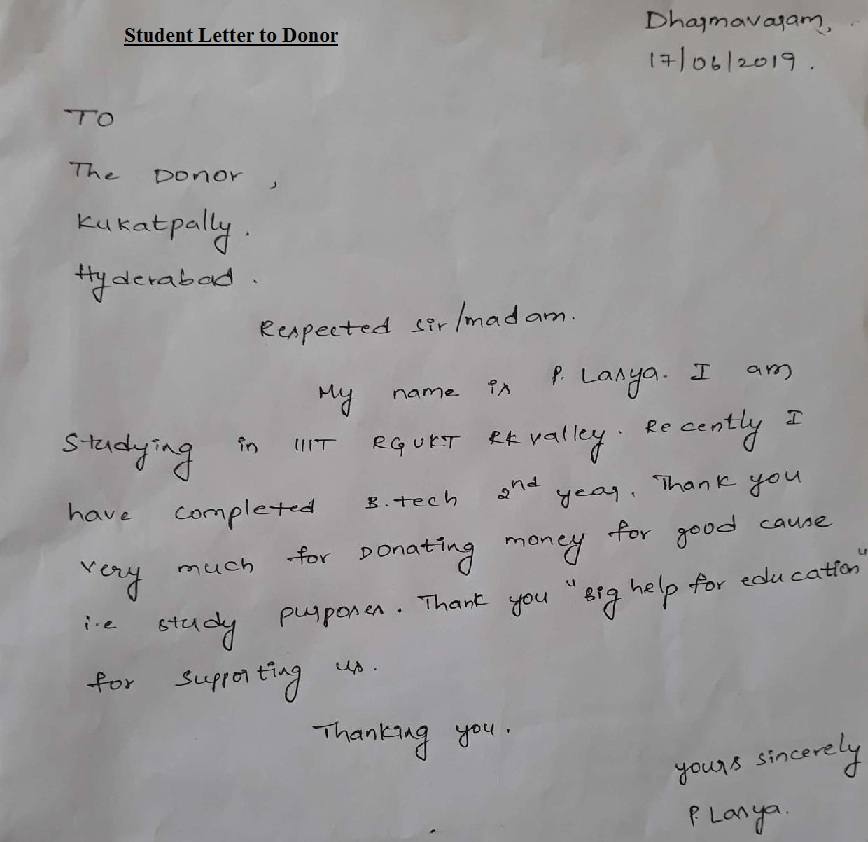 Student Letter to Donor
Dharmavaram,
17/06/2019.
TO
The Donor,
Kukatpally.
Hyderabad.
Respected sir/madam.
My name is P. Lasya. I am
Studying in IIIT RGUKT RK valley. Recently I
have completed B.tech 2nd year. Thank you
very much for Donating money for good cause
i.e study purposes. Thank you "Big help for education"
for supporting us.
Thanking you.
yours sincerely
P. Lasya.